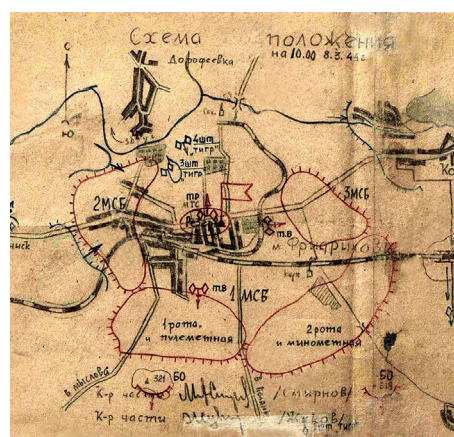 Схема положения
на 10.00 8.3.44г.
Дорофеевка
С
Ю
4шт
"тигр"
3шт
тигр
2МСБ
тр
МТС
3МСБ
т.в
чиск
м. Фридриховка
т.в
1МСБ
1 рота.
и пулеметная
2 рота
и минометная
в Мыслова
321
БО
БО
К-р части /Смирнов/
К-р части /Жуков/
1шт "тигр"